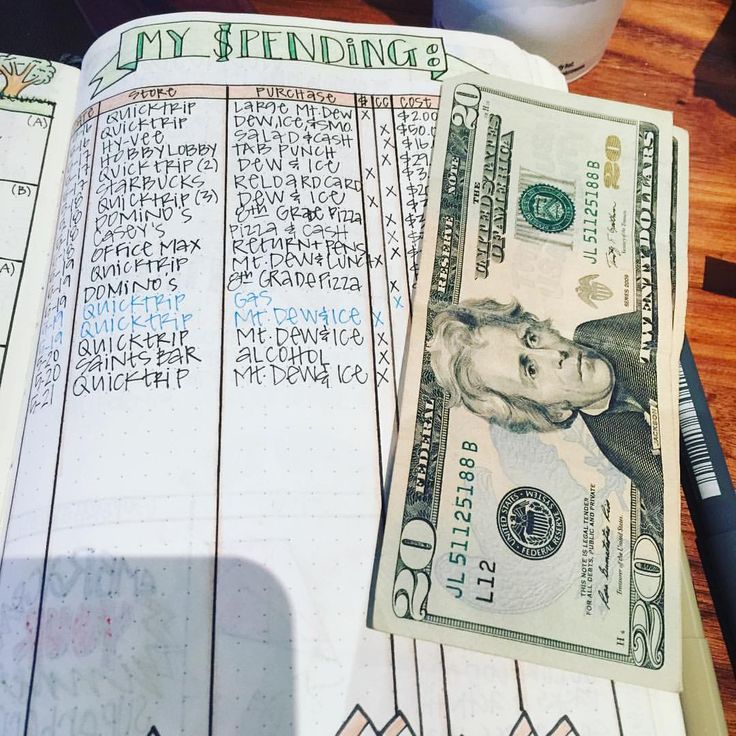 MY $PENDING:
(A)
(B)
(A)
STORE PURCHASE $ CC COST
QUICKTRIP LARGE MT. DEW X $2.00
QUICKTRIP DEW, ICE, & SMO. X $50.0
HY-VEE SALAD & CASH X
HOBBY LOBBY TAB PUNCH X
QUICKTRIP (2) DEW & ICE X
STARBUCKS RELOAD CARD X
QUICKTRIP (3) DEW & ICE X
DOMINO'S 8TH GRADE PIZZA X
CASEY'S PIZZA & CASH X
OFFICE MAX RETURN + PENS X
QUICKTRIP MT. DEW & LUNCH X
DOMINO'S 8TH GRADE PIZZA X
QUICKTRIP GAS X
QUICKTRIP MT. DEW & ICE X
QUICKTRIP MT. DEW & ICE X
5-20 SAINTS BAR ALCOHOL X
5-21 QUICKTRIP MT. DEW & ICE X
20
FEDERAL RESERVE NOTE
THE UNITED STATES OF AMERICA
JL 51125188 B
20
SERIES 2009
TWENTY DOLLARS
JACKSON
JL 51125188 B
L12
THIS NOTE IS LEGAL TENDER
FOR ALL DEBTS, PUBLIC AND PRIVATE
Treasurer of the United States.
H 4
20
20